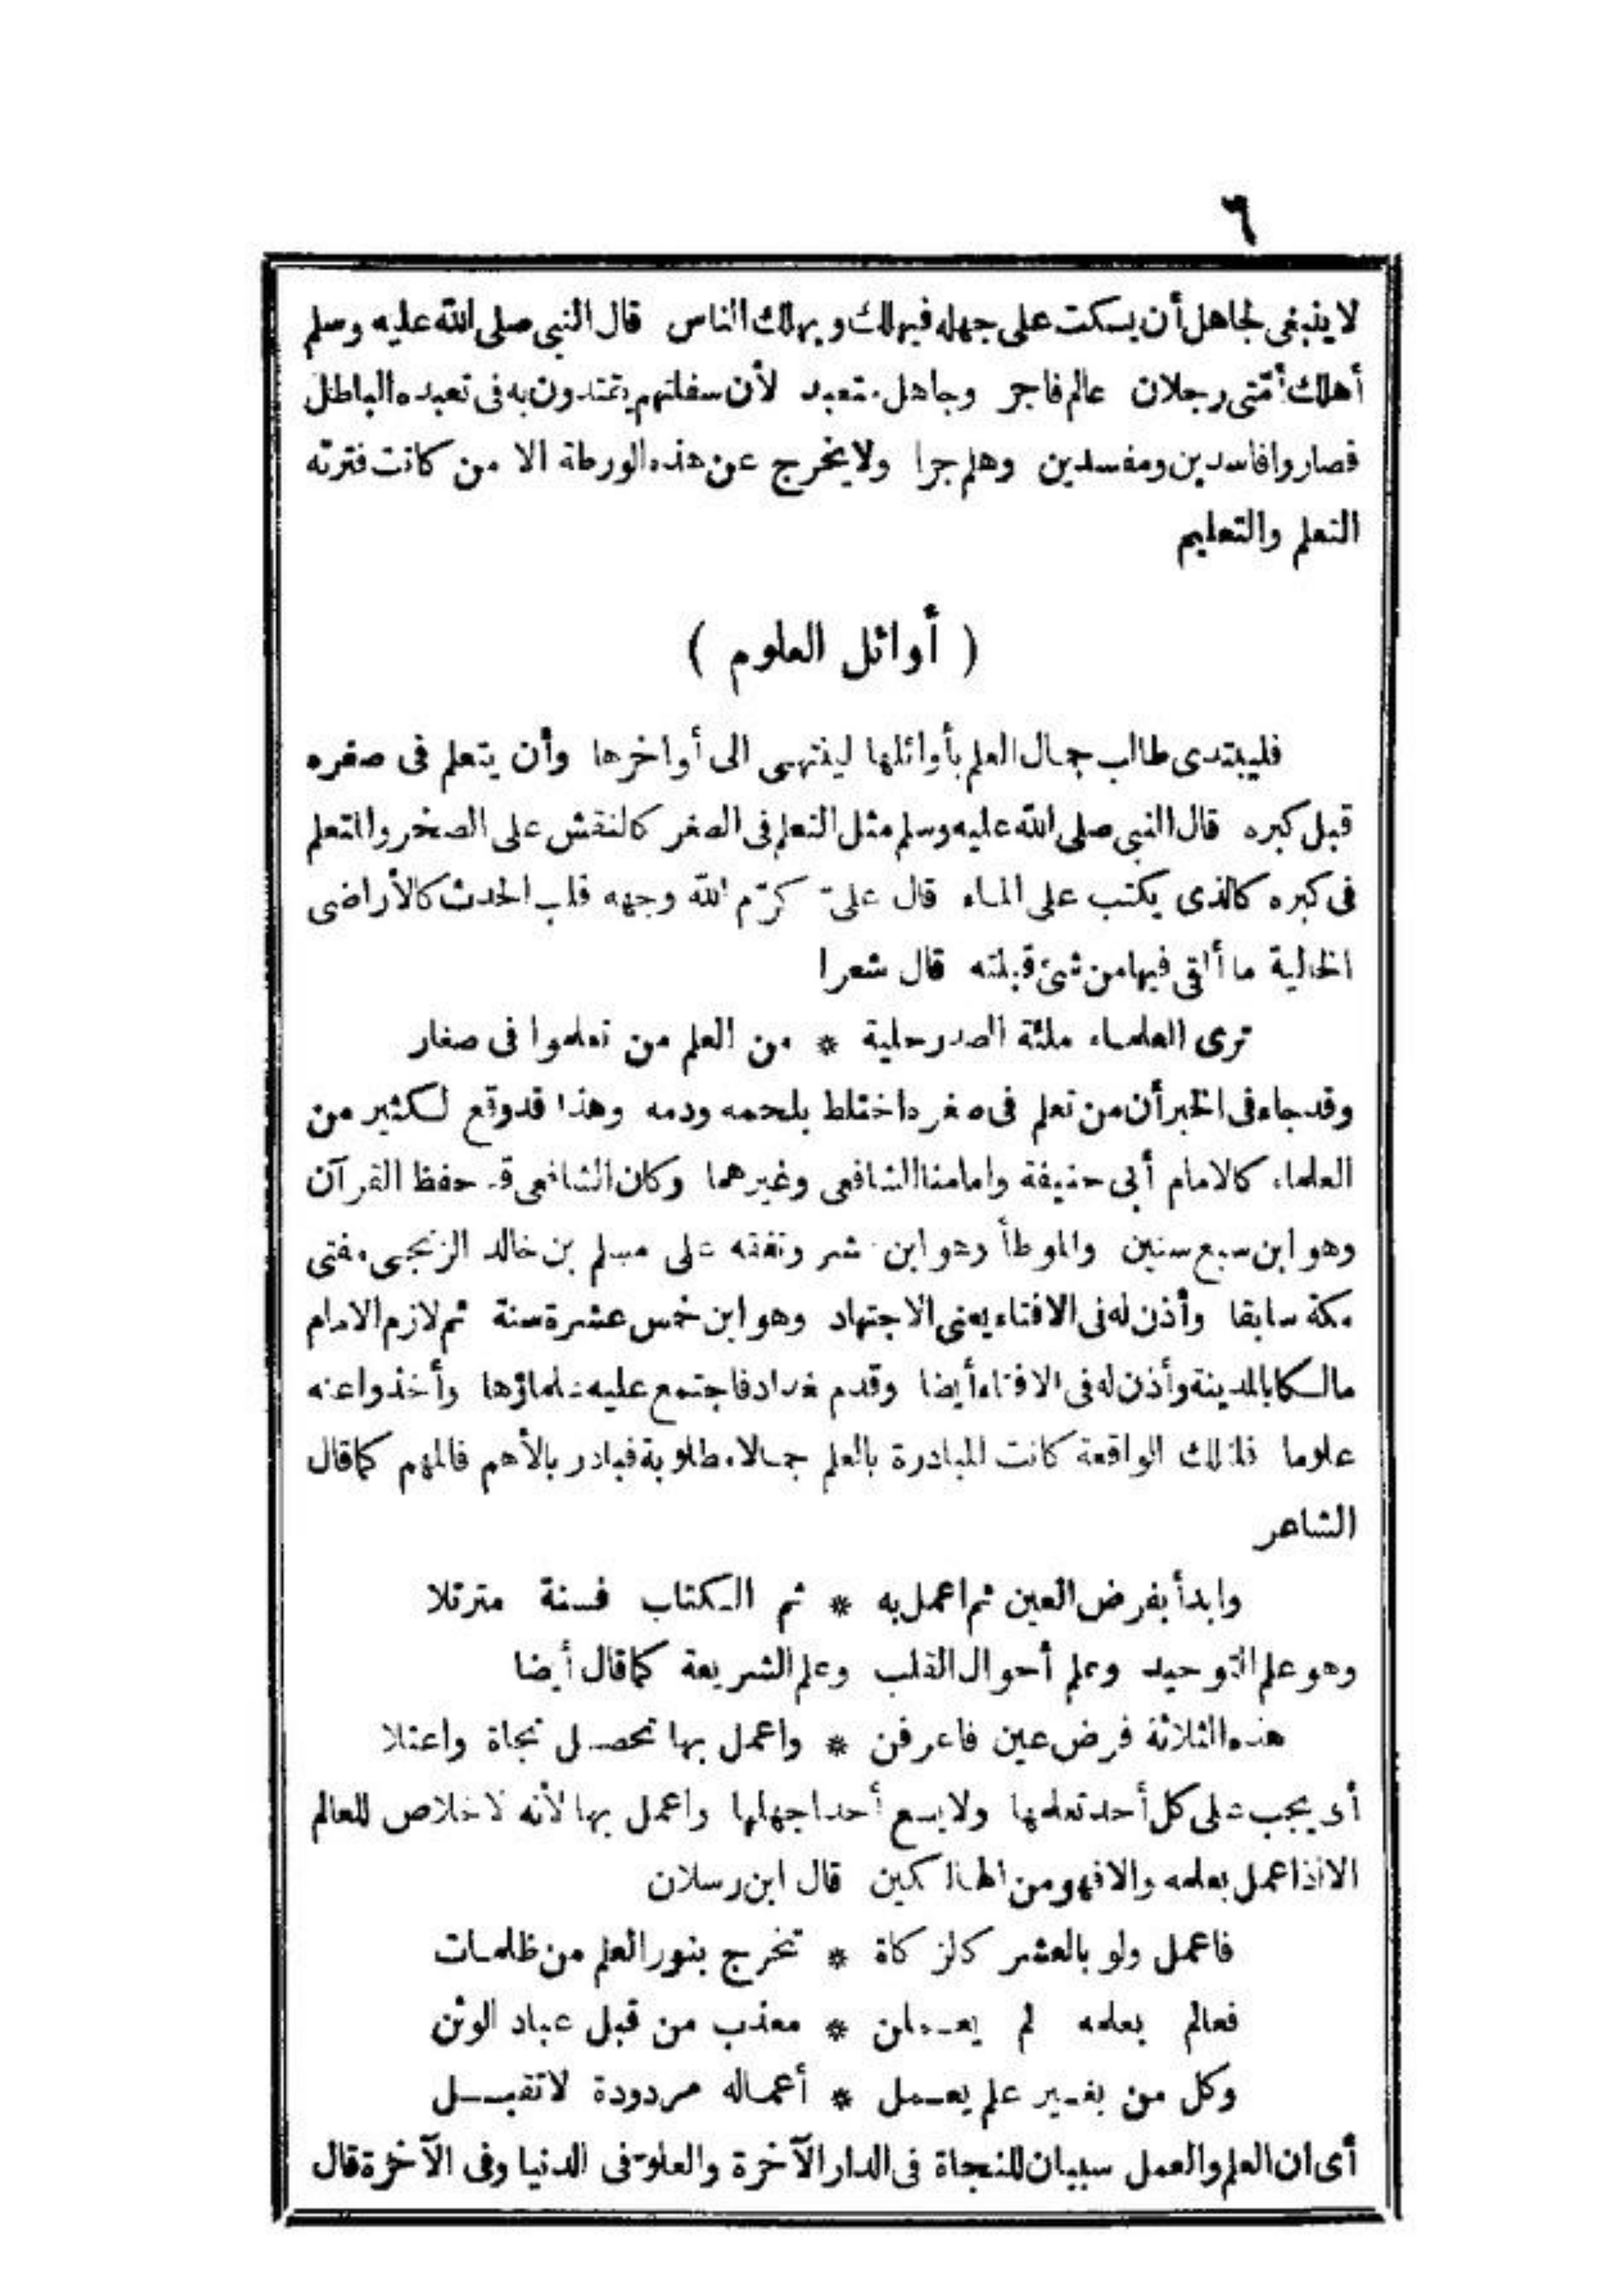 ٦
لا ينبغى لجاهل أن يسكت على جهله فيهلك ويهلك الناس قال النبى صلى الله عليه وسلم
أهلك أمّتى رجلان عالم فاجر وجاهل متعبد لأن سفلتهم يقتدون به فى تعبده الباطل
فصاروا فاسدين ومفسدين وهلم جرا ولا يخرج عن هذه الورطة الا من كانت فترته
التعلم والتعليم
( أوائل العلوم )
فليبتدى طالب جمال العلم بأوائلها لينتهى الى أواخرها وأن يتعلم فى صغره
قبل كبره قال النبى صلى الله عليه وسلم مثل التعلم فى الصغر كالنقش على الصخر والتعلم
فى كبره كالذى يكتب على الماء قال علىّ كرّم الله وجهه قلب الحدث كالأراضى
الخالية ما ألقى فيها من شئ قبلته قال شعرا
ترى العلماء ملئة الصدر حلية * من العلم من تعلموا فى صغار
وقد جاء فى الخبر أن من تعلم فى صغره اختلط بلحمه ودمه وهذا قد وقع لكثير من
العلماء كالامام أبى حنيفة وامامنا الشافعى وغيرهما وكان الشافعى قد حفظ القرآن
وهو ابن سبع سنين والموطأ وهو ابن عشر وتفقه على مسلم بن خالد الزنجى مفتى
مكة سابقا وأذن له فى الافتاء يعنى الاجتهاد وهو ابن خمس عشرة سنة ثم لازم الامام
مالكا بالمدينة وأذن له فى الافتاء أيضا وقدم بغداد فاجتمع عليه علماؤها وأخذوا عنه
علوما فلذلك الواقعة كانت المبادرة بالعلم جمالا مطلوبة فبادر بالأهم فالمهم كما قال
الشاعر
وابدأ بفرض العين ثم اعمل به * ثم الكتاب فسنة مترتلا
وهو علم التوحيد وعلم أحوال القلب وعلم الشريعة كما قال أيضا
هذه الثلاثة فرض عين فاعرفن * واعمل بها تحصل نجاة واعتلا
أى يجب على كل أحد تعلمها ولا يسع أحدا جهلها واعمل بها لأنه لا خلاص للعالم
الا اذا عمل بعلمه والا فهو من الهالكين قال ابن رسلان
فاعمل ولو بالعشر كالزكاة * تخرج بنور العلم من ظلمات
فعالم بعلمه لم يعملن * معذب من قبل عباد الوثن
وكل من بغير علم يعمل * أعماله مردودة لا تقبل
أى ان العلم والعمل سببان للنجاة فى الدار الآخرة والعلوّ فى الدنيا وفى الآخرة قال